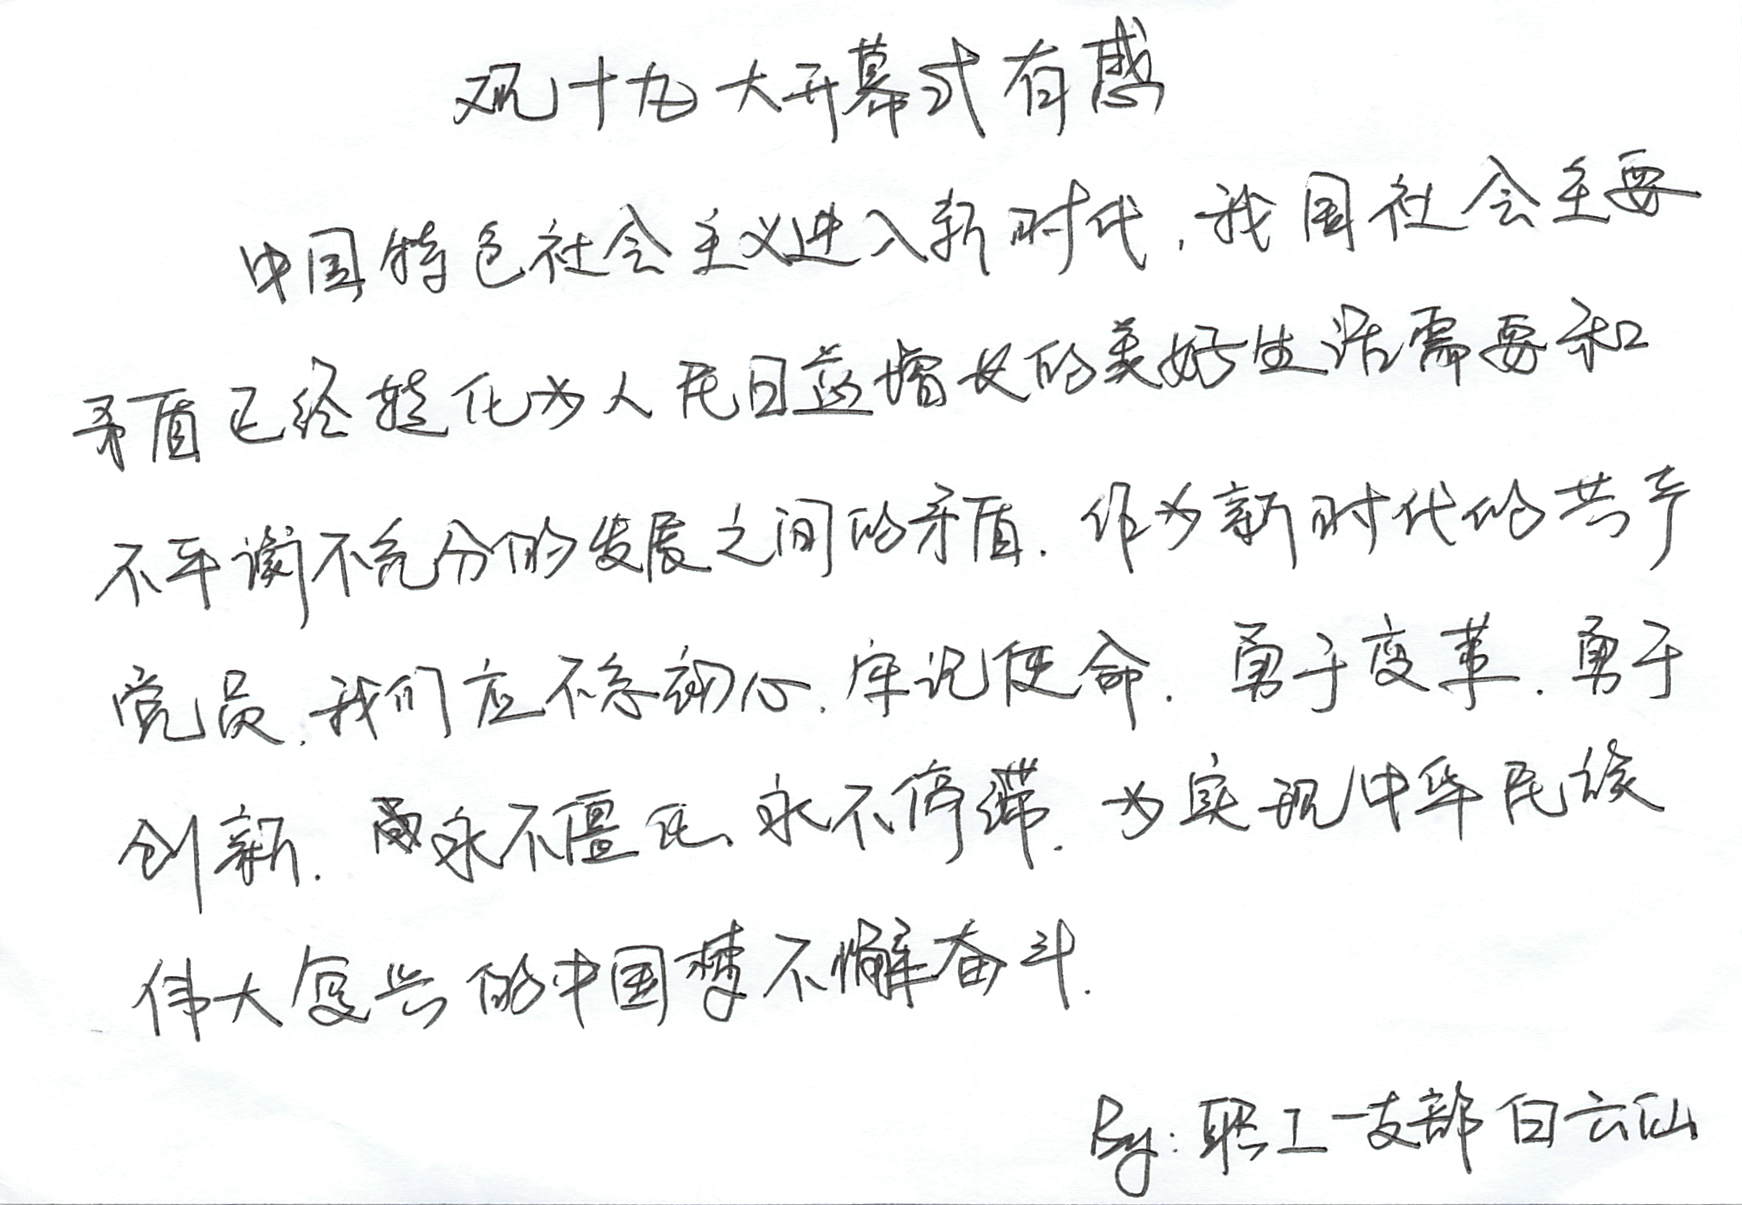 观十九大开幕式有感
中国特色社会主义进入新时代，我国社会主要
矛盾已经转化为人民日益增长的美好生活需要和
不平衡不充分的发展之间的矛盾．作为新时代的共产
党员，我们应不忘初心．牢记使命．勇于变革．勇于
创新．永不僵化、永不停滞．为实现中华民族
伟大复兴的中国梦不懈奋斗．
By：职工一支部 白云仙